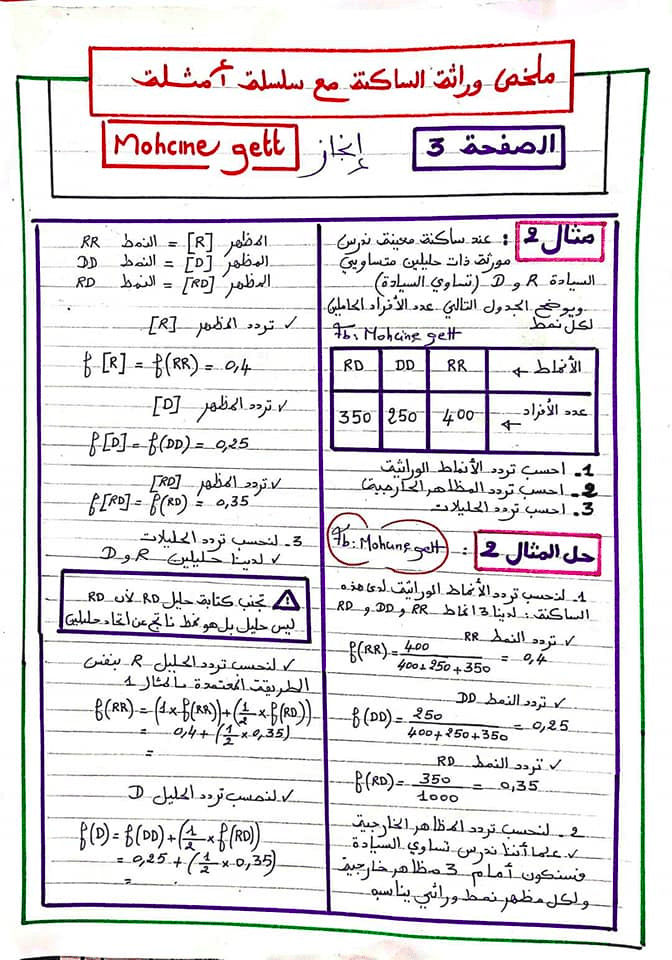 ملخص وراثة الساكنة مع سلسلة أمثلة
الصفحة 3 إنجاز Mohcine gett
مثال 2 : عند ساكنة معينة ندرس
مورثة ذات حليلين متساويي
السيادة R و D (تساوي السيادة)
ويوضح الجدول التالي عدد الأفراد الحاملين
لكل نمط
Fb: Mohcine gett
الأنماط ← RR DD RD
عدد الأفراد ← 400 250 350
1. احسب تردد الأنماط الوراثية
2. احسب تردد المظاهر الخارجية
3. احسب تردد الحليلات
حل المثال 2 : Fb: Mohcine gett
1. لنحسب تردد الأنماط الوراثية لدى هذه
الساكنة: لدينا 3 أنماط RR و DD و RD
✓ تردد النمط RR
f(RR) = 400 / 400+250+350 = 0,4
✓ تردد النمط DD
f(DD) = 250 / 400+250+350 = 0,25
✓ تردد النمط RD
f(RD) = 350 / 1000 = 0,35
2. لنحسب تردد المظاهر الخارجية
✓ علما أننا ندرس تساوي السيادة
فسنكون أمام 3 مظاهر خارجية
ولكل مظهر نمط وراثي يناسبه
المظهر [R] = النمط RR
المظهر [D] = النمط DD
المظهر [RD] = النمط RD
✓ تردد المظهر [R]
f[R] = f(RR) = 0,4
✓ تردد المظهر [D]
f[D] = f(DD) = 0,25
✓ تردد المظهر [RD]
f[RD] = f(RD) = 0,35
3. لنحسب تردد الحليلات
✓ لدينا حليلين R و D
⚠ تجنب كتابة حليل RD لأن RD
ليس حليل بل هو نمط ناتج عن التقاء حليلين
✓ لنحسب تردد الحليل R بنفس
الطريقة المعتمدة بالمثال 1
f(RR) = (1×f(RR))+(1/2×f(RD))
= 0,4+(1/2×0,35)
=
✓ لنحسب تردد الحليل D
f(D) = f(DD)+(1/2×f(RD))
= 0,25+(1/2×0,35)
=